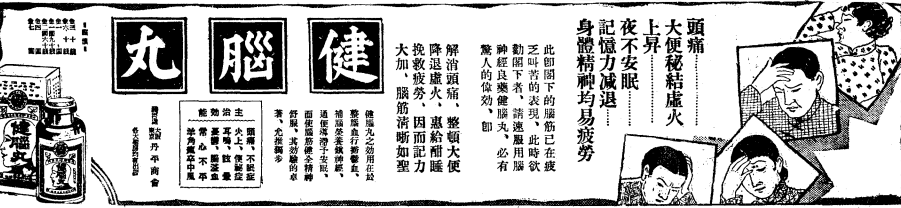 頭痛………………
大便秘結虛火
上昇………………
夜不安眠………
記憶力減退……
身體精神均易疲勞
此卽閣下的腦筋已在疲
乏叫苦的表現、此時欲
勸閣下者、請速服用腦
神經良藥健腦丸、必有
驚人的偉効、卽
解消頭痛、整頓大便
降退虛火、惠給酣睡
挽救疲勞、因而記力
大加、腦筋清晰如聖
健腦丸
健腦丸之効用在於
整腦血行擠鬱血、
補腦榮養鎮神經、
通便導滯予安眠、
面使腦筋健全精神
舒服、奏効驗的卓
著、尤推獨步
主治効能
頭痛、不眠症
火上升、便秘症
耳鳴、眩暈
憂鬱、腦溢血
常心不平
羊角瘋卒中風
丹平商會
健腦丸